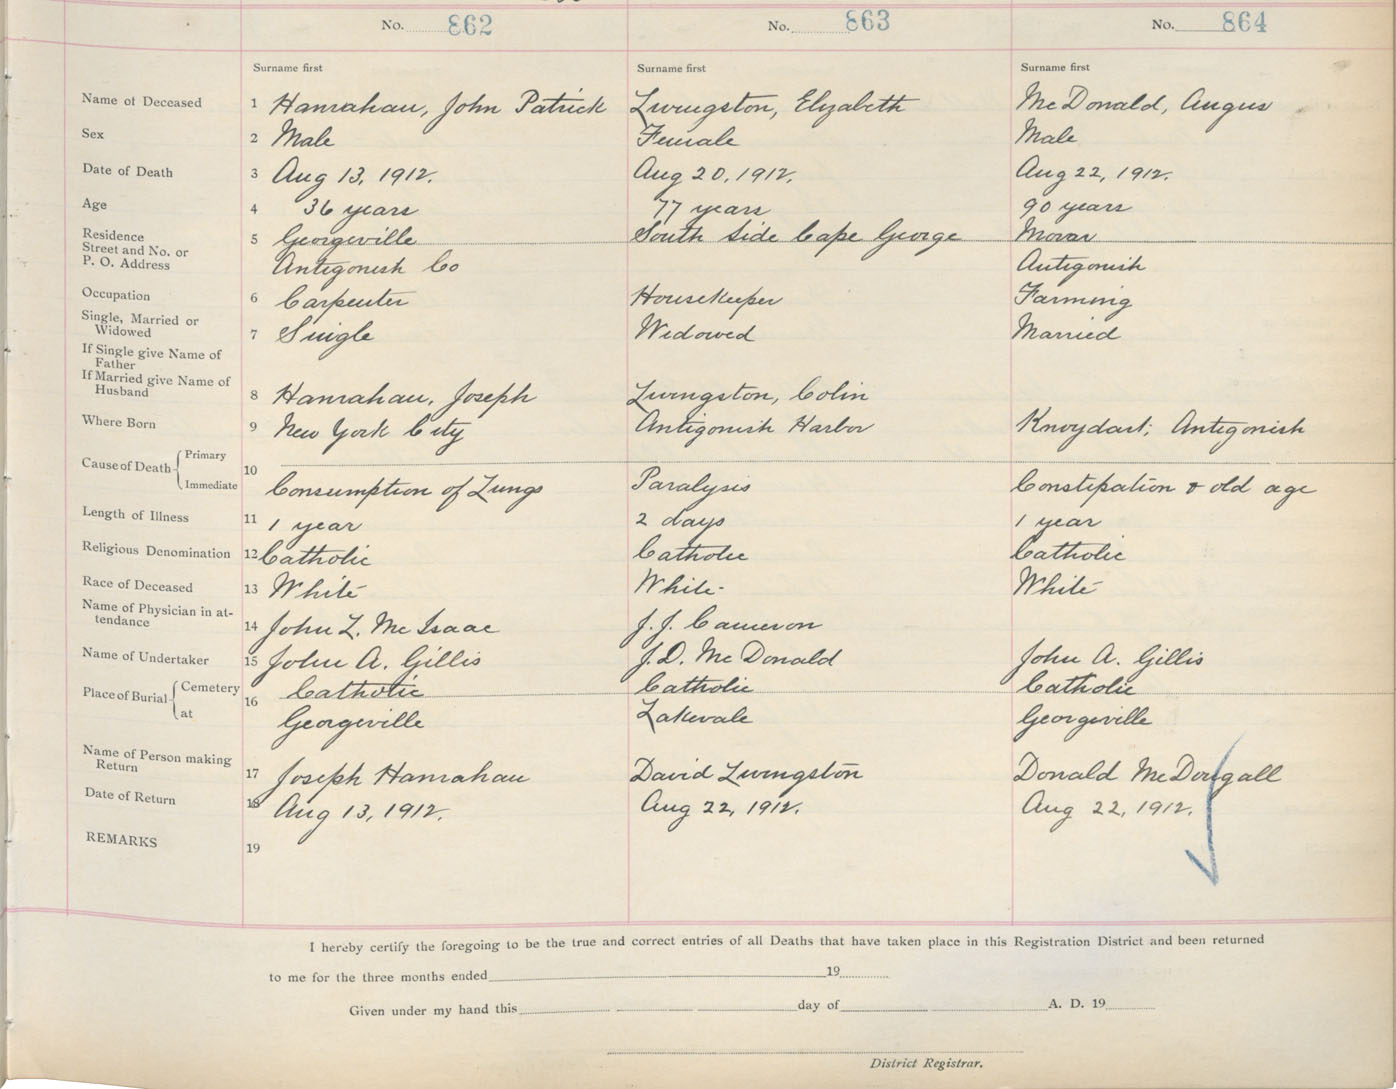 No. 862 No. 863 No. 864
Surname first Surname first Surname first
Name of Deceased 1 Hanrahan, John Patrick Livingston, Elizabeth McDonald, Angus
Sex 2 Male Female Male
Date of Death 3 Aug 13, 1912. Aug 20, 1912. Aug 22, 1912.
Age 4 36 years 77 years 90 years
Residence
Street and No. or 5 Georgeville South Side Cape George Morar
P. O. Address Antigonish Co Antigonish
Occupation 6 Carpenter Housekeeper Farming
Single, Married or
Widowed 7 Single Widowed Married
If Single give Name of
Father
If Married give Name of
Husband 8 Hanrahan, Joseph Livingston, Colin
Where Born 9 New York City Antigonish Harbor Knoydart; Antigonish
Cause of Death Primary
10
Immediate Consumption of Lungs Paralysis Constipation & old age
Length of Illness 11 1 year 2 days 1 year
Religious Denomination 12 Catholic Catholic Catholic
Race of Deceased 13 White White White
Name of Physician in at-
tendance 14 John L. McIsaac J. J. Cameron
Name of Undertaker 15 John A. Gillis J. D. McDonald John A. Gillis
Place of Burial Cemetery 16 Catholic Catholic Catholic
at Georgeville Lakevale Georgeville
Name of Person making
Return 17 Joseph Hanrahan David Livingston Donald McDougall
Date of Return 18 Aug 13, 1912. Aug 22, 1912. Aug 22, 1912.
REMARKS 19
I hereby certify the foregoing to be the true and correct entries of all Deaths that have taken place in this Registration District and been returned
to me for the three months ended 19
Given under my hand this day of A. D. 19
District Registrar.